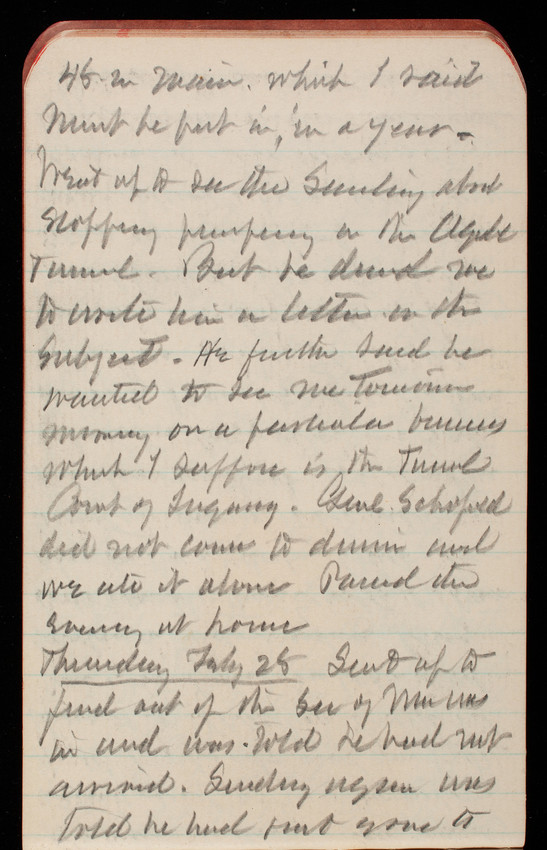 48 in main. which I said
must be put in, in a year.
Went up to see the Secretary about
stopping pumping in the Aqdt
Tunnel. But he desired me
to write him a letter on the
subject. He further said he
wanted to see me Tomorrow
morning on a particular business
which I suppose is the Tunnel
Court of Inquiry. Genl. Schofield
did not come to dinner and
we ate it alone Passed the
evening at home
Thursday July 28 Sent up to
find out if the Sec of War was
in and was told he had not
arrived. Sending again was
told he had just gone to